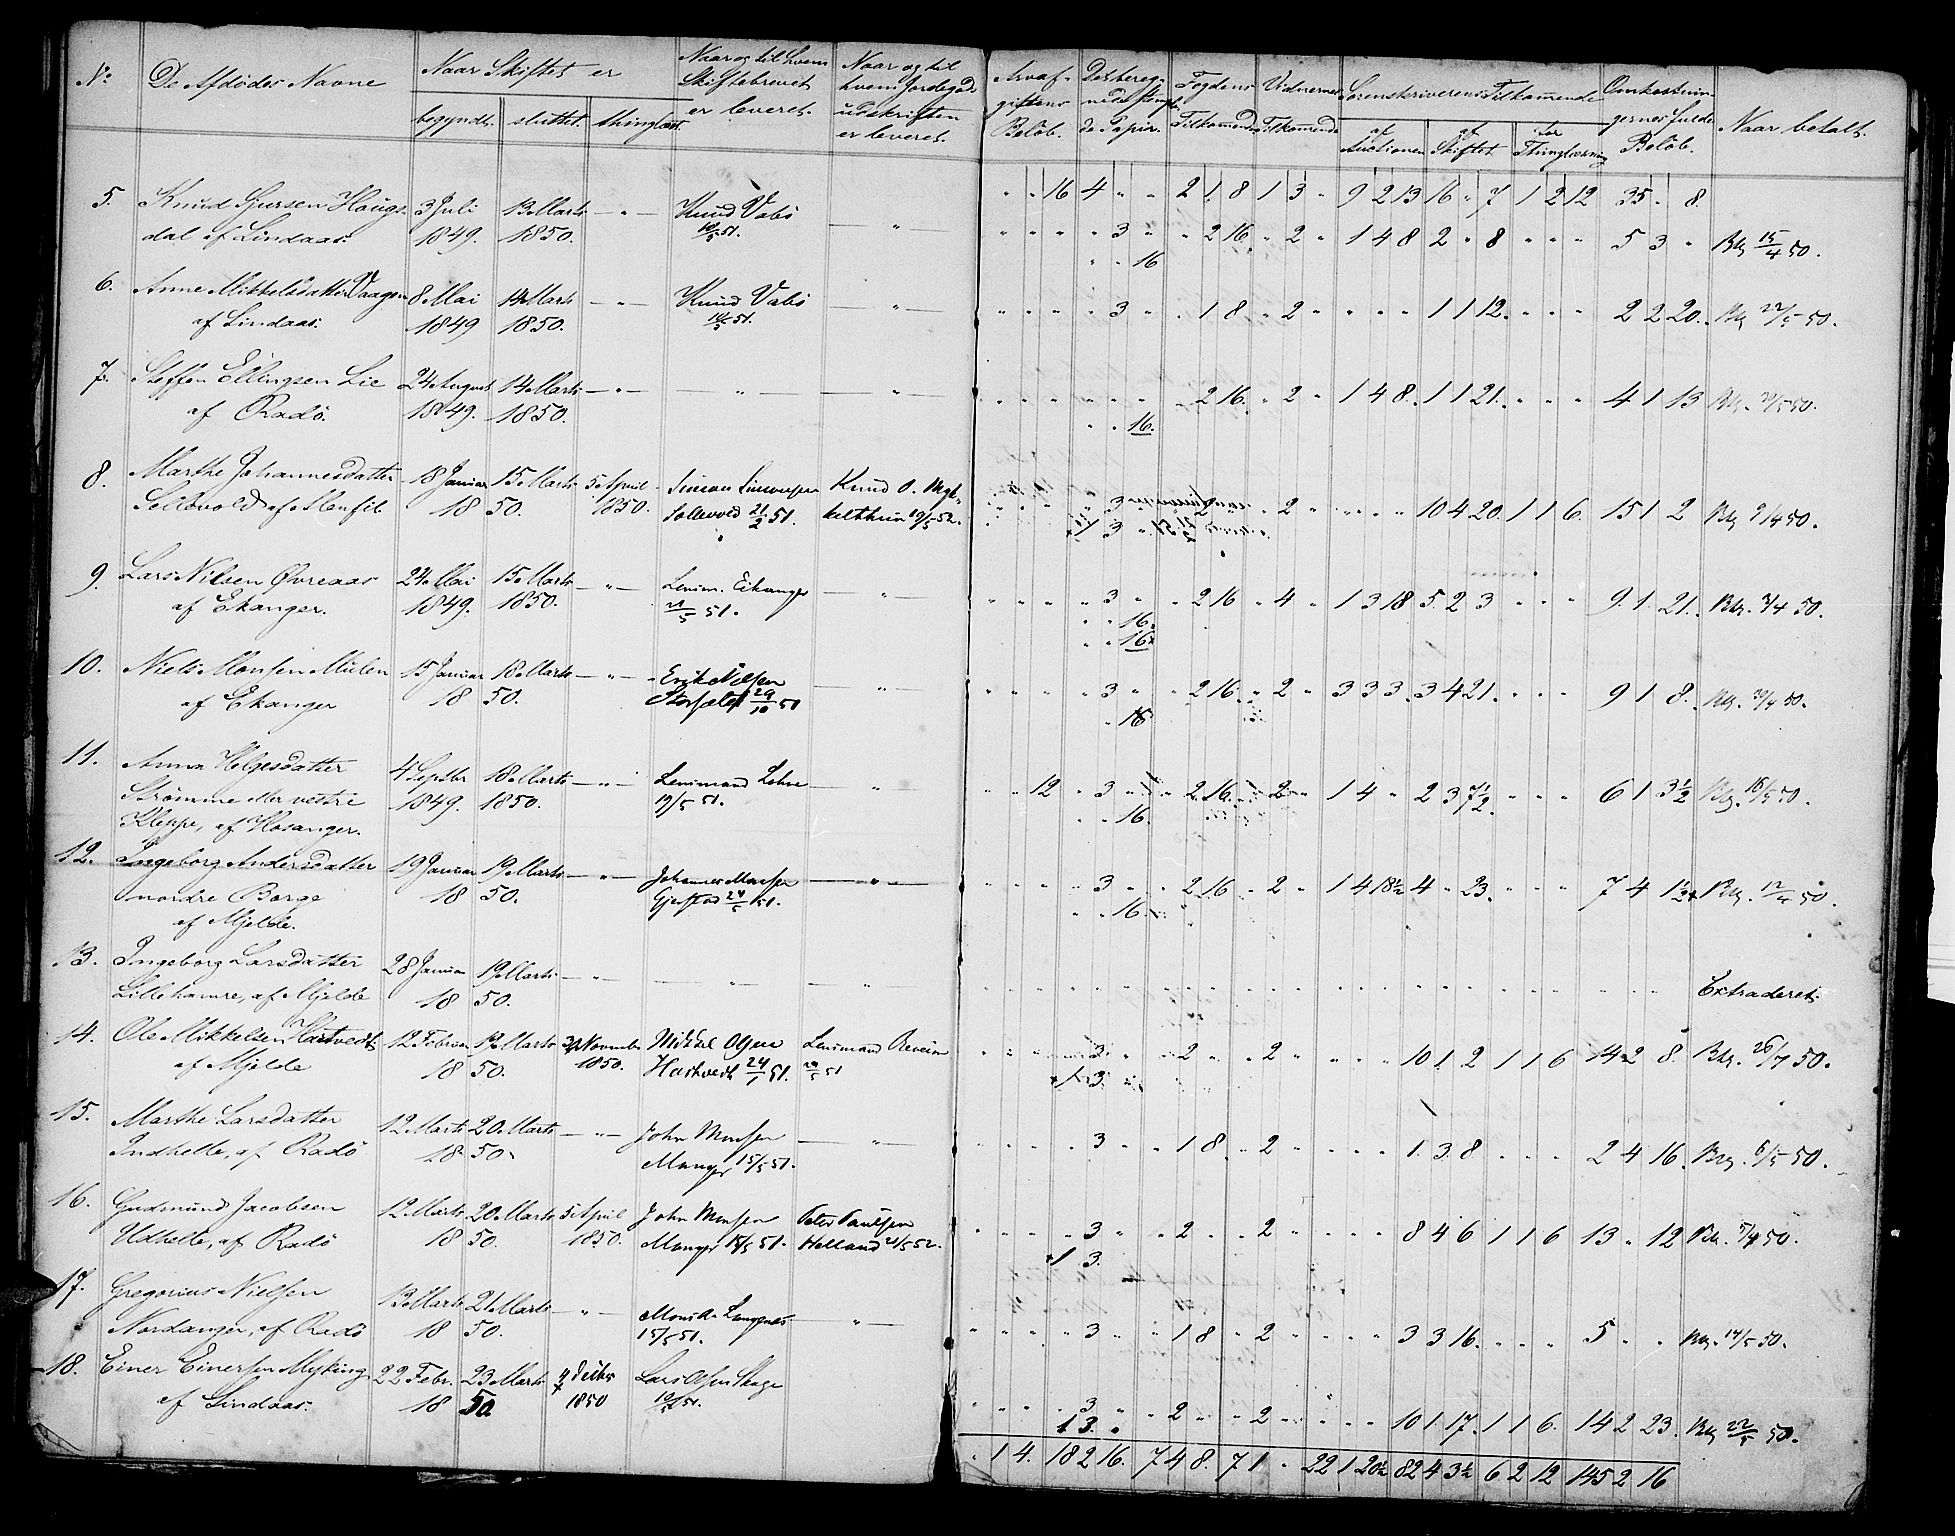 No. De Afdødes Navne Naar Skiftet er Naar og til hvem Skiftebrevet er leveret. Naar og til hvem Jordegods udskriften er leveret. Arveafgiftens Beløb. Det beregnede stemplede Papir. Fogdens Tilkommende Vidnernes Tilkommende Sorenskriverens Tilkommende Omkostningernes fulde Beløb. Naar betalt.
begyndt. sluttet. thinglæst. af Auctionen af Skiftet for Thinglæsning
5. Knud Sjursen Hougs- 3 Juli 13 Marts — " — Knud Vabö " " 16 4 " " 2 1 8 1 3 " 9 2 13 16 " 7 1 2 12 35 " 8.
dal af Lindaas. 1849. 1850. 10/5 51. — " — " " " " 3 " " 2 16 " 2 " 1 4 8 2 " 8 " " " 5 3 " Blg 15/4 50.
" " 16
6. Anne Mikkelsdatter Vaagen 8 Mai 14 Marts — " — Knud Vabö — " — " " " " 3 " " 1 8 " 2 " " " " 1 1 12 " " " 2 2 20. Blg 22/5 50.
af Lindaas. 1849 1850. 10/5 51.
7. Steffen Ellingsen Lie 24 August 14 Marts — " — — " — — " — " " " " " " " 2 16 " 2 " 1 4 8 1 1 21 " " " 4 1 13 Blg. 50.
af Radö. 1849. 1850. " " 16.
8. Marthe Johannesdatter 18 Januar 15 Marts 5 April Simon Simonsen Knud O. 3 " 2 " " " 2 " " " " 10 4 20 1 1 6. 15 1 2 Blg 9/4 50.
Sollevold af Manfit 18 50. 1850. Sollevold 21/2 51. 19/5 52. 1 3 "
9. Lars Nilsen Øvreaas 24 Mai 15 Marts — " — Lensm. Eikanger — " — " " " " 3 " " 2 16 " 4 " 1 3 18 5 2 3 " " " 9. 1. 21. Blg. 3/4 50.
af Ekanger. 1849. 1850. 51. " " 16.
" " 16.
10. Niels Monsen Mulen 15 Januar 18 Marts — " — Erik Nilsen — " — " " " " 3 " " 2 16 " 2 " 3 3 3 3 4 21 " " " 9 1 8. Blg. 30/4 50.
af Ekanger 18 50. Storsæter 29/10 50 " " 16
11. Anna Helgesdatter 4 Septbr 18 Marts — " — Lensmand Lehne — " — " " 12 " 3 " " 2 16 " 2 " 1 4 " 2 3 7½ " " " 6 1 3½ Blg. 16/5 50.
Strømme eller vestre 1849. 1850. 19/5 51. " " 16.
Kleppe, af Hosanger.
12. Ingeborg Andersdatter 19 Januar 19 Marts — " — Johannes Monsen — " — " " " " 3 " " 2 16 " 2 " 1 4 18½ 4 " 23 " " " 7 4 1½ Blg. 12/4 50.
nordre Borge 18 50. Gjestad 24/5 51. " " 16.
af Mjelde.
13. Ingeborg Larsdatter 28 Januar 19 Marts — " — — " — — " — Extraderet.
Lillehamre, af Mjelde 18 50.
14. Ole Mikkelsen Hartvedt 12 Februar 19 Marts November Mikkel Olsen Lensmand " " " " 3 " " 2 " " 2 " " " " 10 1 2 1 1 6 14 2 8. Blg. 26/7 50.
af Mjelde 18 50. 1850. Hartvedt 24/1 51. 51 1 3.
15. Marthe Larsdatter 12 Marts 20 Marts — " — John Monsen — " — " " " " 3 " " 1 8 " 2 " " " " 1. 3. 8 " " " 2 4 16. Blg. 6/5 50.
Indhelle, af Radö 18 50. Manger 15/5 51.
16. Gudmund Jacobsen 12 Marts 20 Marts 5 April John Monsen Peter Paulsen " " " " 3 " " 2 " " 2 " " " " 8 4 6 1 1 6 13 " 12 Blg. 5/4 50.
Udhelle, af Radö 18 50. 1850. Manger 15/5 51. Helland 21/5 52. 1 3.
17. Gregorius Nielsen 13 Marts 21 Marts — " — — " — " " " " 3 " " 1 8 " 2 " " " " 3 3 16 " " " 5 " " Blg. 14/5 50.
Nordanger, af Radö 18 50. 15/5 51.
18. Einer Einersen Myking 22 Febr. 23 Marts Decbr Lars Olsen Skage " " " " 3 " " 2 " " 2 " " " " 10 1 17 1 1 6. 14 2 23. Blg 22/5 50.
af Lindaas. 18 50 1850 51. 1 3.
" 1 4. 18 2 16. 7 4 8. 7 1 " 22 1 20½ 82 4 3½ 6 2 12 145 2 16